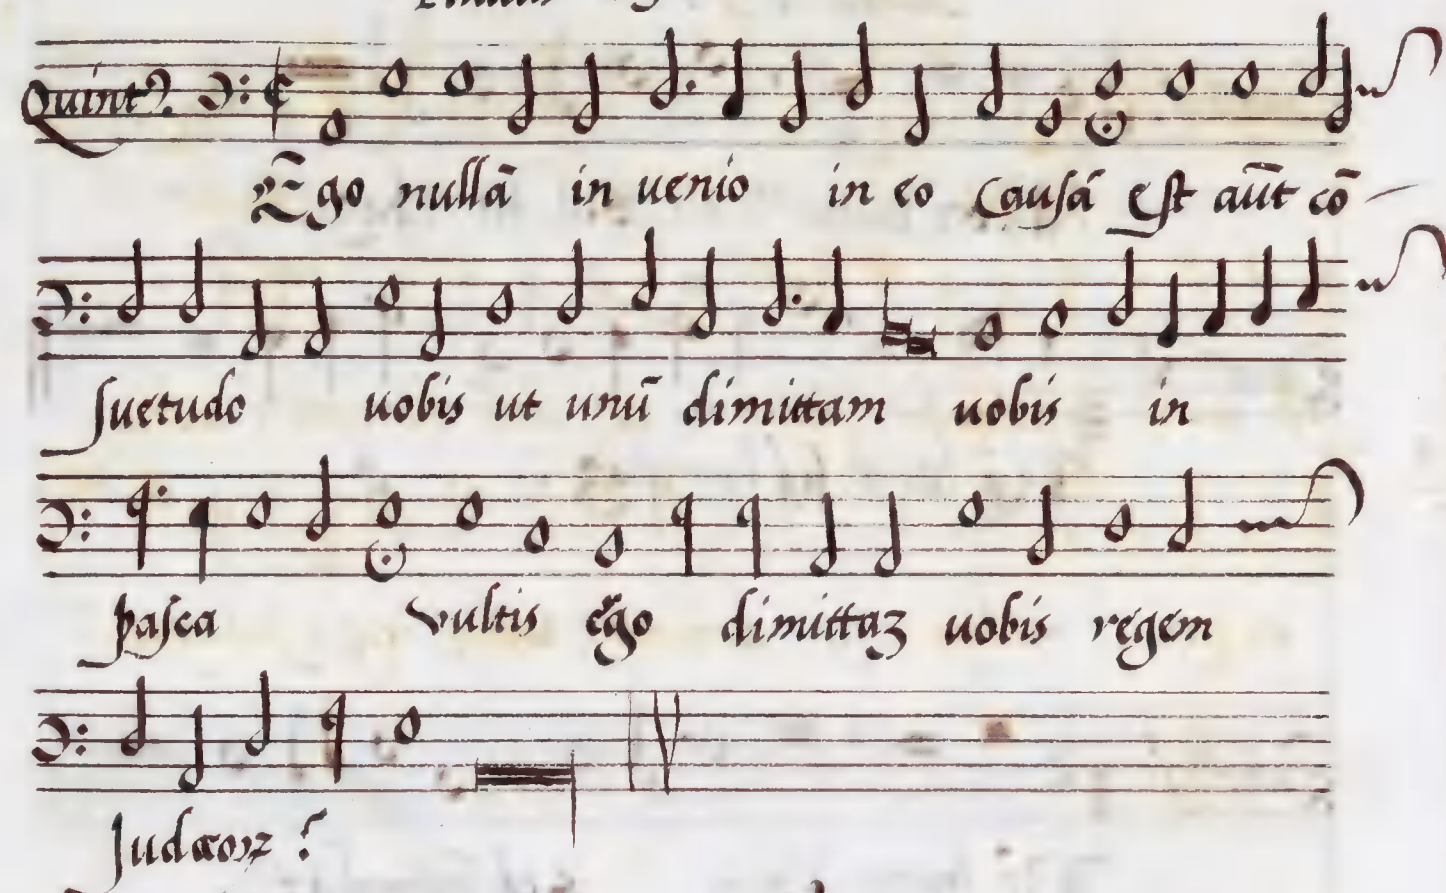 Quint9.
Ego nullā in uenio in eo Causā Est aūt cō-
suetudo uobis ut unū dimittam uobis in
pasca vultis ego dimittaz uobis regem
Judæoꝝ ?